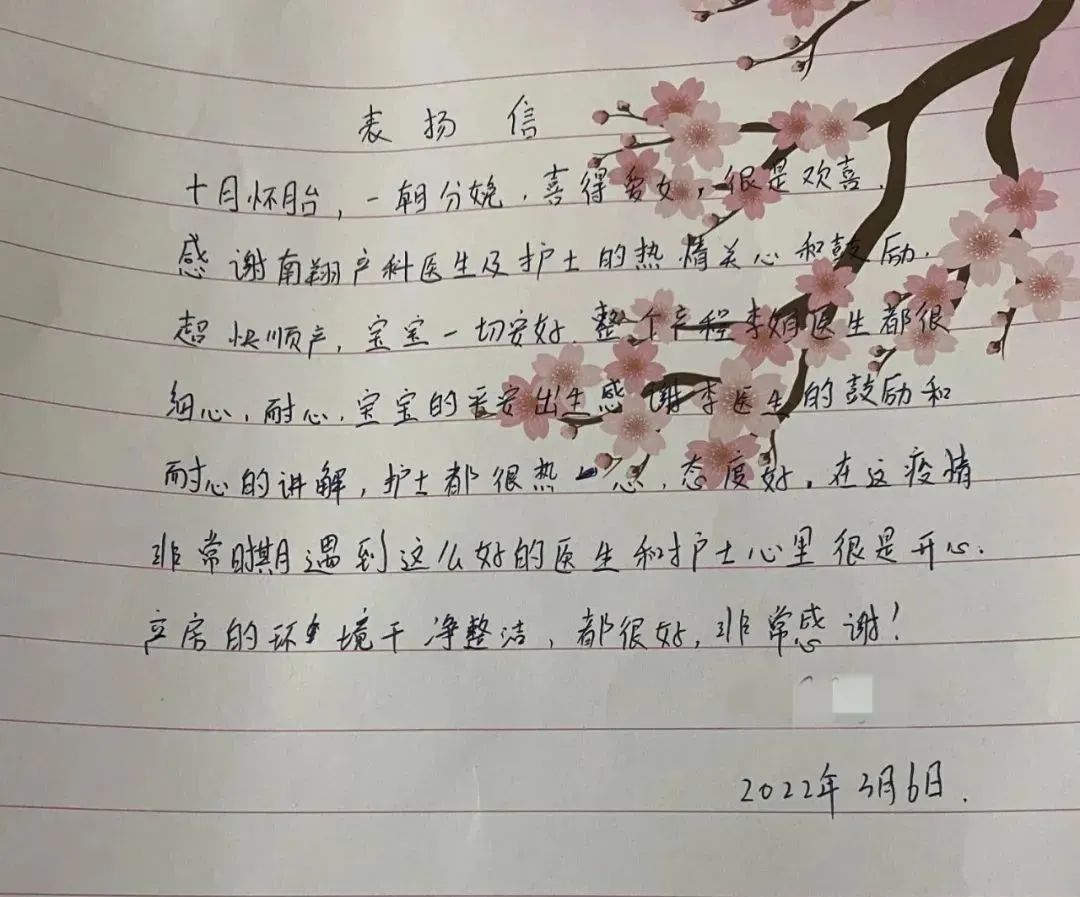 表扬信
十月怀胎，一朝分娩，喜得爱女，很是欢喜.
感谢南翔产科医生及护士的热情关心和鼓励.
超快顺产，宝宝一切安好.整个产程李娟医生都很
细心，耐心.宝宝的平安出生感谢李医生的鼓励和
耐心的讲解，护士都很热心，态度好，在这疫情
非常时期遇到这么好的医生和护士心里很是开心.
产房的环境干净整洁，都很好，非常感谢！
2022年3月6日.